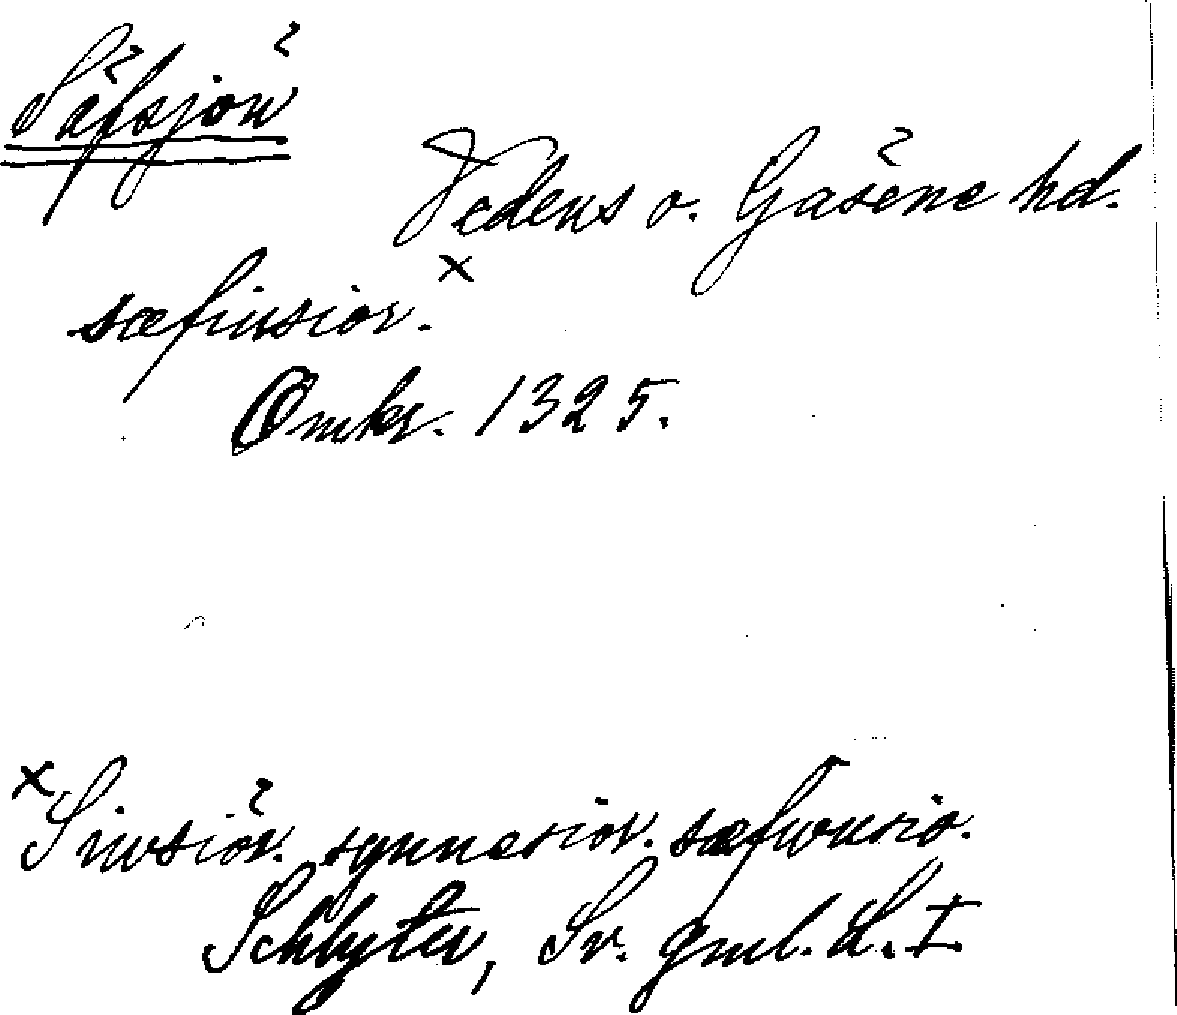 Säfsjön
Vedens o. Gäsene hd.
sæfiusior. x
Omkr. 1325.
x Sivsiör. synnersior. sæfwursio.
Schlyter, Sv. gml. L. I